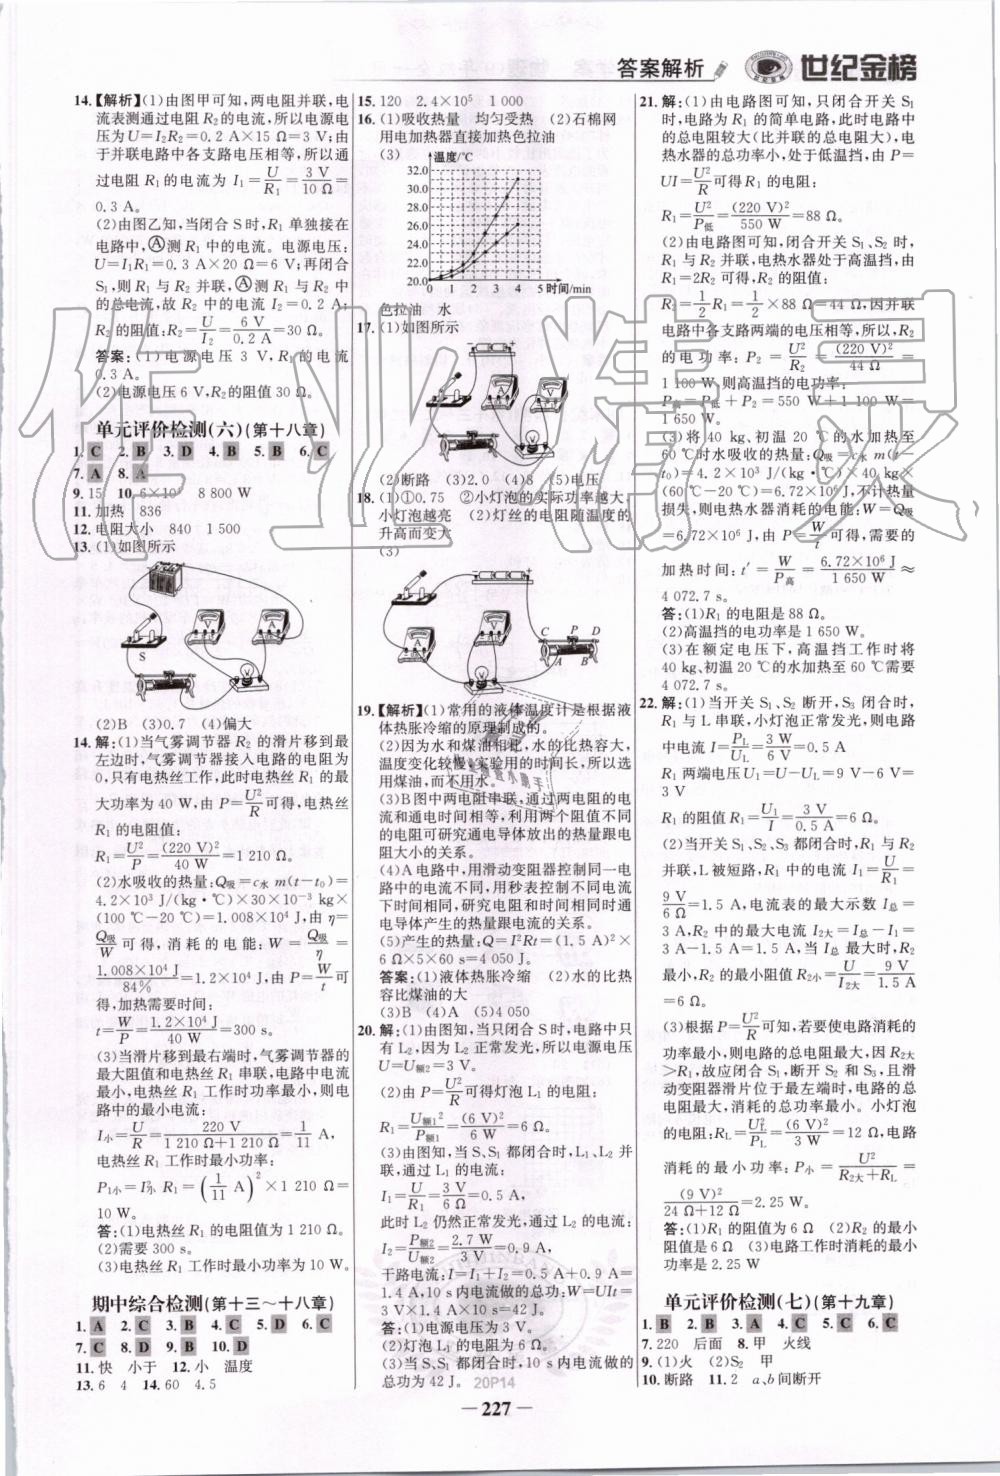 答案解析 世纪金榜
14.【解析】(1)由图甲可知,两电阻并联,电
流表测通过电阻 R₂的电流,所以电源电
压为 U=I₂R₂=0.2 A×15 Ω=3 V;由
于并联电路中各支路电压相等,所以通
过电阻 R₁ 的电流为 I₁=U/R₁=3 V/10 Ω=
0.3 A。
(2)由图乙知,当闭合 S 时,R₁ 单独接在
电路中,Ⓐ测 R₁ 中的电流。电源电压:
U=I₁R₁=0.3 A×20 Ω=6 V;再闭合
S₁,则 R₁ 与 R₂ 并联,Ⓐ测 R₁ 与 R₂ 中
的总电流,故 R₂ 中的电流 I₂=0.2 A;
R₂ 的阻值:R₂=U/I₂=6 V/0.2 A=30 Ω。
答案:(1)电源电压 3 V,R₁的电流
0.3 A。
(2)电源电压 6 V,R₂的阻值 30 Ω。
单元评价检测(六)(第十八章)
1. C 2. B 3. D 4. B 5. B 6. C
7. A 8. A
9. 15 10. 6×10⁵ 8 800 W
11. 加热 836
12. 电阻大小 840 1 500
13. (1)如图所示
S
(2)B (3)0.7 (4)偏大
14. 解:(1)当气雾调节器 R₂ 的滑片移到最
左边时,气雾调节器接入电路的电阻为
0,只有电热丝工作,此时电热丝 R₁ 的最
大功率为 40 W,由 P=U²/R可得,电热丝
R₁ 的电阻值:
R₁=U²/P=(220 V)²/40 W=1 210 Ω。
(2)水吸收的热量:Q吸=c水 m(t-t₀)=
4.2×10³ J/(kg·℃)×30×10⁻³ kg×
(100 ℃-20 ℃)=1.008×10⁴ J,由 η=
Q吸/W 可得,消耗的电能:W=Q吸/η=
1.008×10⁴ J/84%=1.2×10⁴ J,由 P=W/t可
得,加热需要时间:
t=W/P=1.2×10⁴ J/40 W=300 s。
(3)当滑片移到最右端时,气雾调节器的
最大阻值和电热丝 R₁ 串联,电路中电流
最小,电热丝 R₁ 工作时功率最小,则电
路中的最小电流:
I小=U/R=220 V/1 210 Ω+1 210 Ω=1/11 A,
电热丝 R₁ 工作时最小功率:
P₁小=I²小 R₁=(1/11 A)²×1 210 Ω=
10 W。
答:(1)电热丝 R₁ 的电阻值为 1 210 Ω。
(2)需要 300 s。
(3)电热丝 R₁ 工作时最小功率为 10 W。
期中综合检测(第十三～十八章)
1. A 2. C 3. B 4. C 5. D 6. C
7. C 8. D 9. B 10. D
11. 快 小于 12. 小 温度
13. 6 4 14. 60 4.5
15. 120 2.4×10⁵ 1 000
16. (1)吸收热量 均匀受热 (2)石棉网
用电加热器直接加热色拉油
(3)
温度/℃
32.0
30.0
28.0
26.0
24.0
22.0
20.0
0 1 2 3 4 5 时间/min
色拉油 水
17. (1)如图所示
(2)断路 (3)2.0 (4)8 (5)电压
18. (1)①0.75 ②小灯泡的实际功率越大,
小灯泡越亮 (2)灯丝的电阻随温度的
升高而变大
(3)
C P D
A B
19.【解析】(1)常用的液体温度计是根据液
体热胀冷缩的原理制成的。
(2)因为水和煤油相比,水的比热容大,
温度变化较慢,实验用的时间长,所以选
用煤油,而不用水。
(3)B图中两电阻串联,通过两电阻的电
流和通电时间相等,利用两个阻值不同
的电阻可研究通电导体放出的热量跟电
阻大小的关系。
(4)A电路中,用滑动变阻器控制同一电
路中的电流不同,用秒表控制不同电流
下时间相同,研究电阻和时间相同时通
电导体产生的热量跟电流的关系。
(5)产生的热量:Q=I²Rt=(1.5 A)²×
6 Ω×5×60 s=4 050 J。
答案:(1)液体热胀冷缩 (2)水的比热
容比煤油的大
(3)B (4)A (5)4 050
20. 解:(1)由图知,当只闭合 S 时,电路中只
有 L₂,因为 L₂ 正常发光,所以电源电压
U=U额2=3 V。
(2)由 P=U²/R可得灯泡 L₁ 的电阻:
R₁=U额1²/P额1=(6 V)²/6 W=6 Ω。
(3)由图知,当 S、S₁ 都闭合时,L₁、L₂ 并
联,通过 L₁ 的电流:
I₁=U/R₁=3 V/6 Ω=0.5 A,
此时 L₂ 仍然正常发光,通过 L₂ 的电流:
I₂=P额2/U额2=2.7 W/3 V=0.9 A,
干路电流:I=I₁+I₂=0.5 A+0.9 A=
1.4 A,10 s 内电流做的总功:W=UIt=
3 V×1.4 A×10 s=42 J。
答:(1)电源电压为 3 V。
(2)灯泡 L₁ 的电阻为 6 Ω。
(3)当 S、S₁ 都闭合时,10 s 内电流做的
总功为 42 J。
20P14
— 227 —
21. 解:(1)由电路图可知,只闭合开关 S₁
时,电路为 R₁ 的简单电路,此时电路中
的总电阻较大(比并联的总电阻大),电
热水器的总功率小,处于低温挡,由 P=
UI=U²/R可得 R₁ 的电阻:
R₁=U²/P低=(220 V)²/550 W=88 Ω。
(2)由电路图可知,闭合开关 S₁、S₂ 时,
R₁ 与 R₂ 并联,电热水器处于高温挡,由
R₁=2R₂ 可得,R₂ 的阻值:
R₂=1/2R₁=1/2×88 Ω=44 Ω,因并联
电路中各支路两端的电压相等,所以,R₂
的电功率:P₂=U²/R₂=(220 V)²/44 Ω=
1 100 W,则高温挡的电功率:
P高=P低+P₂=550 W+1 100 W=
1 650 W。
(3)将 40 kg、初温 20 ℃的水加热至
60 ℃时水吸收的热量:Q吸=c水 m(t-
t₀)=4.2×10³ J/(kg·℃)×40 kg×
(60 ℃-20 ℃)=6.72×10⁶ J,不计热量
损失,则电热水器消耗的电能:W=Q吸
=6.72×10⁶ J,由 P=W/t可得,需要的
加热时间:t′=W/P高=6.72×10⁶ J/1 650 W≈
4 072.7 s。
答:(1)R₁ 的电阻是 88 Ω。
(2)高温挡的电功率是 1 650 W。
(3)在额定电压下,高温挡工作时将
40 kg、初温 20 ℃的水加热至 60 ℃需要
4 072.7 s。
22. 解:(1)当开关 S₁、S₂ 断开,S₃ 闭合时,
R₁ 与 L 串联,小灯泡正常发光,则电路
中电流 I=PL/UL=3 W/6 V=0.5 A
R₁ 两端电压 U₁=U-UL=9 V-6 V=
3 V
R₁ 的阻值 R₁=U₁/I=3 V/0.5 A=6 Ω。
(2)当开关 S₁、S₂、S₃ 都闭合时,R₁ 与 R₂
并联,L 被短路,R₁ 中的电流 I₁=U/R₁=
9 V/6 Ω=1.5 A,电流表的最大示数 I总=
3 A,R₂ 中的最大电流 I2大=I总-I₁=
3 A-1.5 A=1.5 A。当 I总 最大时,R₂
最小,R₂ 的最小阻值 R2小=U/I2大=9 V/1.5 A
=6 Ω。
(3)根据 P=U²/R可知,若要使电路消耗的
功率最小,则电路的总电阻最大,因 R2大
>R₁,故应闭合 S₁,断开 S₂ 和 S₃,且滑
动变阻器滑片位于最左端时,电路的总
电阻最大,消耗的总功率最小。小灯泡
的电阻:RL=UL²/PL=(6 V)²/3 W=12 Ω,电路
消耗的最小功率:P小=U²/R2大+RL=
(9 V)²/24 Ω+12 Ω=2.25 W。
答:(1)R₁ 的阻值为 6 Ω (2)R₂ 的最小
阻值是 6 Ω (3)电路工作时消耗的最小
功率是 2.25 W
单元评价检测(七)(第十九章)
1. B 2. B 3. A 4. D 5. C 6. C
7. 220 后面 8. 甲 火线
9. (1)火 (2)S₂ 甲
10. 断路 11. 2 a、b间断开
作业精灵